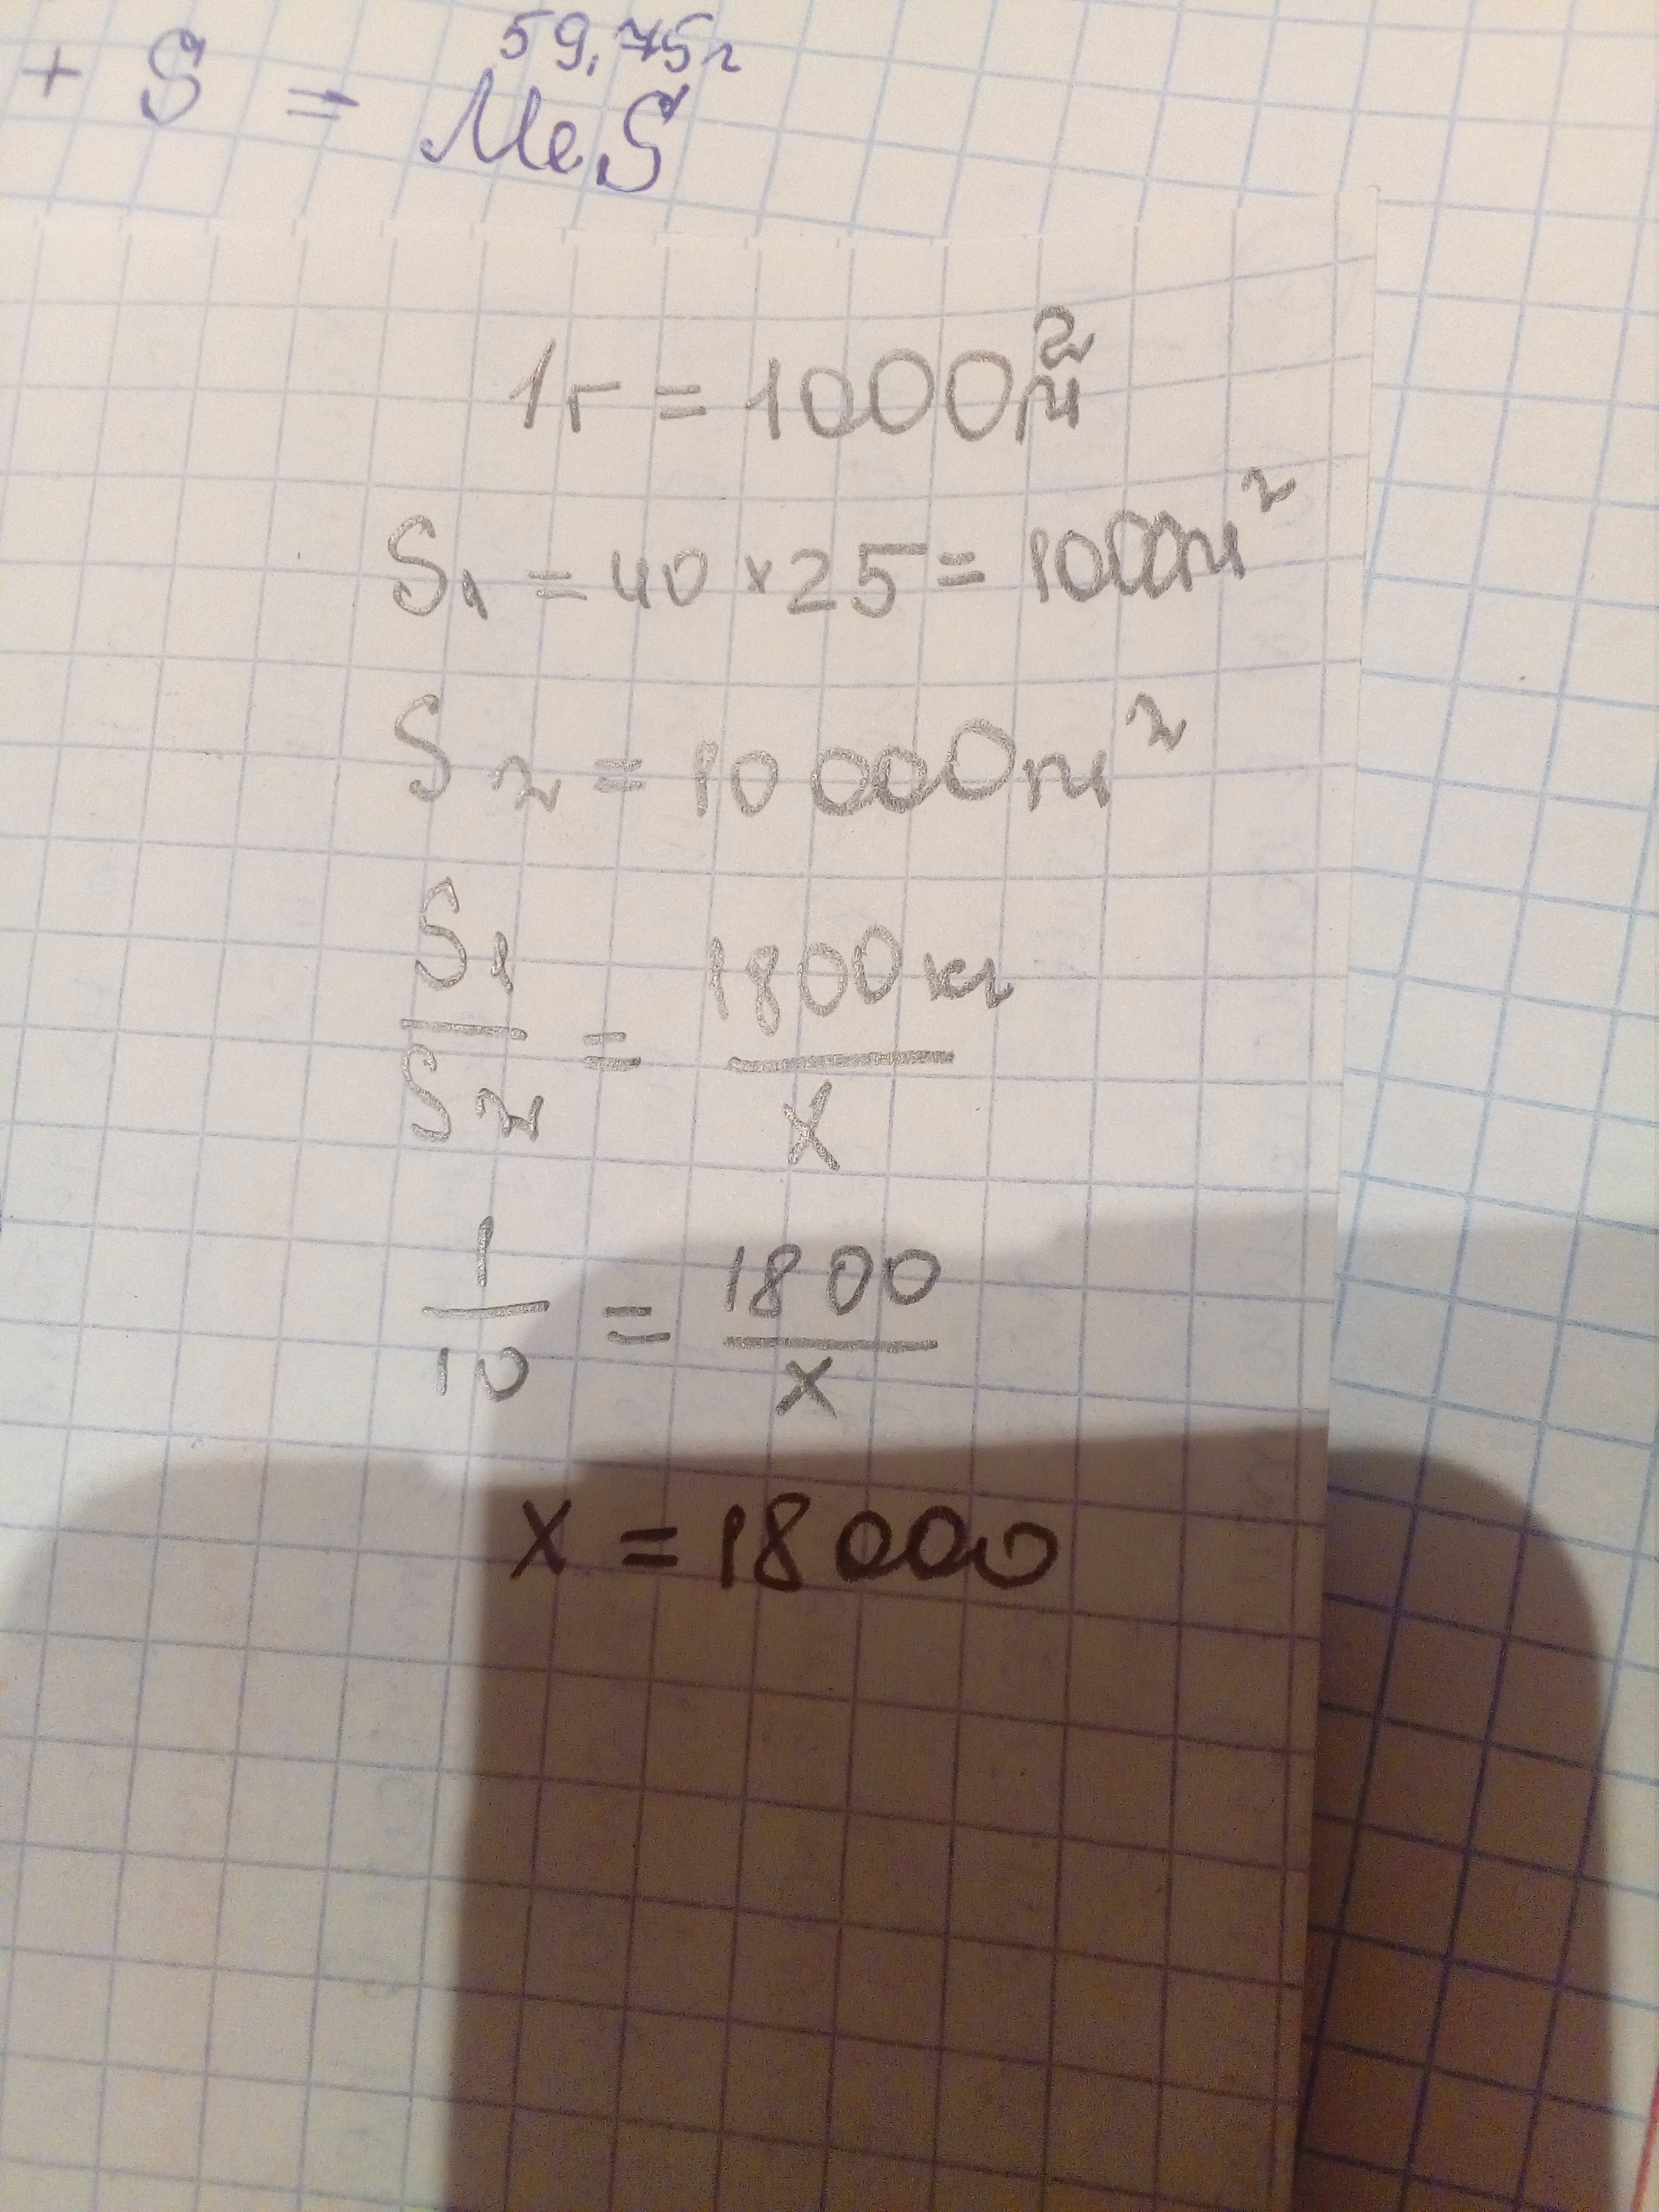 59,75г
+ S = MeS
1г = 1000м²
S₁ = 40 × 25 = 1000м²
S₂ = 10 000м²
S₁/S₂ = 1800кг/x
1/10 = 1800/x
x = 18 000